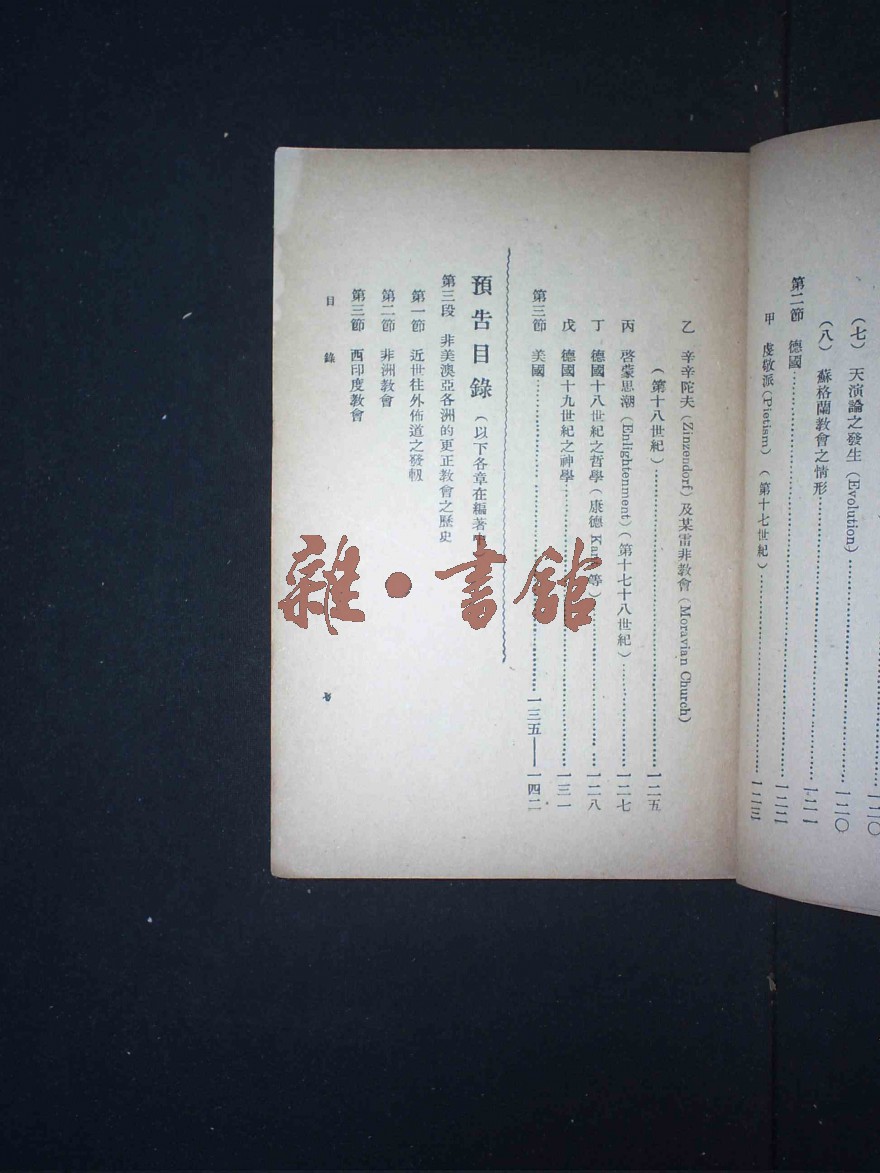 一二〇
（七） 天演論之發生（Evolution）……一二〇
（八） 蘇格蘭教會之情形……一二一
第二節 德國……一二二
甲 虔敬派（Pietism）（第十七世紀）……一二三
乙 辛辛陀夫（Zinzendorf）及某雷非教會（Moravian Church）
（第十八世紀）……一二五
丙 啓蒙思潮（Enlightenment）（第十七十八世紀）……一二七
丁 德國十八世紀之哲學（康德 Kant 等）……一二八
戊 德國十九世紀之神學……一三一
第三節 美國……一三五——一四二
預告目錄（以下各章在編著中）
第三段 非美澳亞各洲的更正教會之歷史
第一節 近世往外佈道之發軔
第二節 非洲教會
第三節 西印度教會
目錄
雜·書館